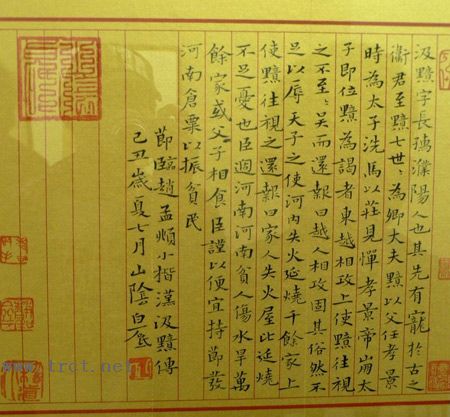 汲黯字長孺濮陽人也其先有寵於古之
衛君至黯七世〻為卿大夫黯以父任孝景
時為太子洗馬以莊見憚孝景帝崩太
子即位黯為謁者東越相攻上使黯往視
之不至〻吳而還報曰越人相攻固其俗然不
足以辱天子之使河內失火延燒千餘家上
使黯往視之還報曰家人失火屋比延燒
不足憂也臣過河南河南貧人傷水旱萬
餘家或父子相食臣謹以便宜持節發
河南倉粟以振貧民
節臨趙孟頫小楷漢汲黯傳
己丑歲夏七月山陰白
www.trct.net